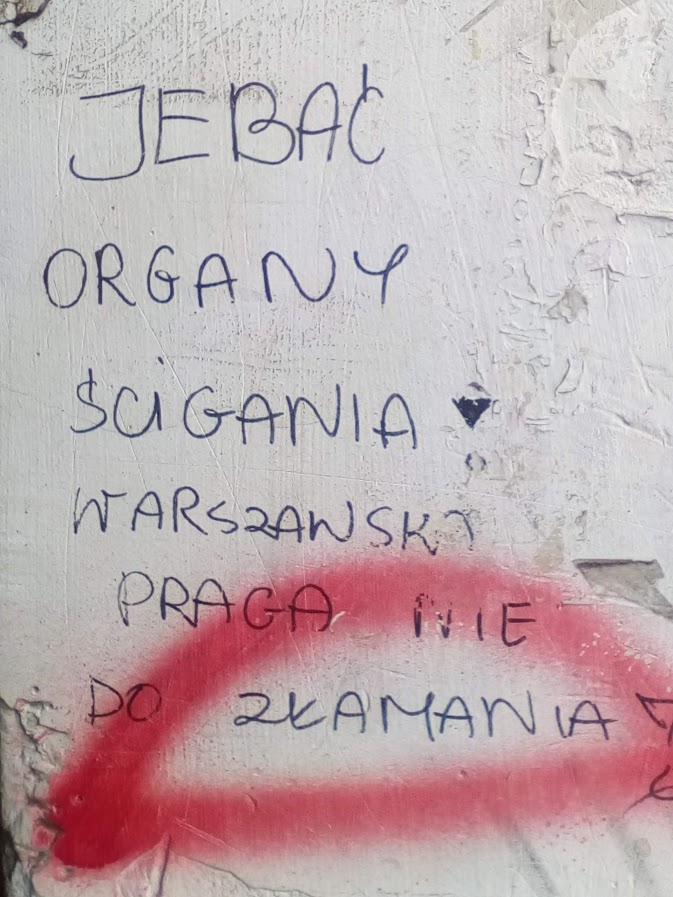 JEBAĆ
ORGANY
ŚCIGANIA
WARSZAWSKA
PRAGA NIE
DO ZŁAMANIA